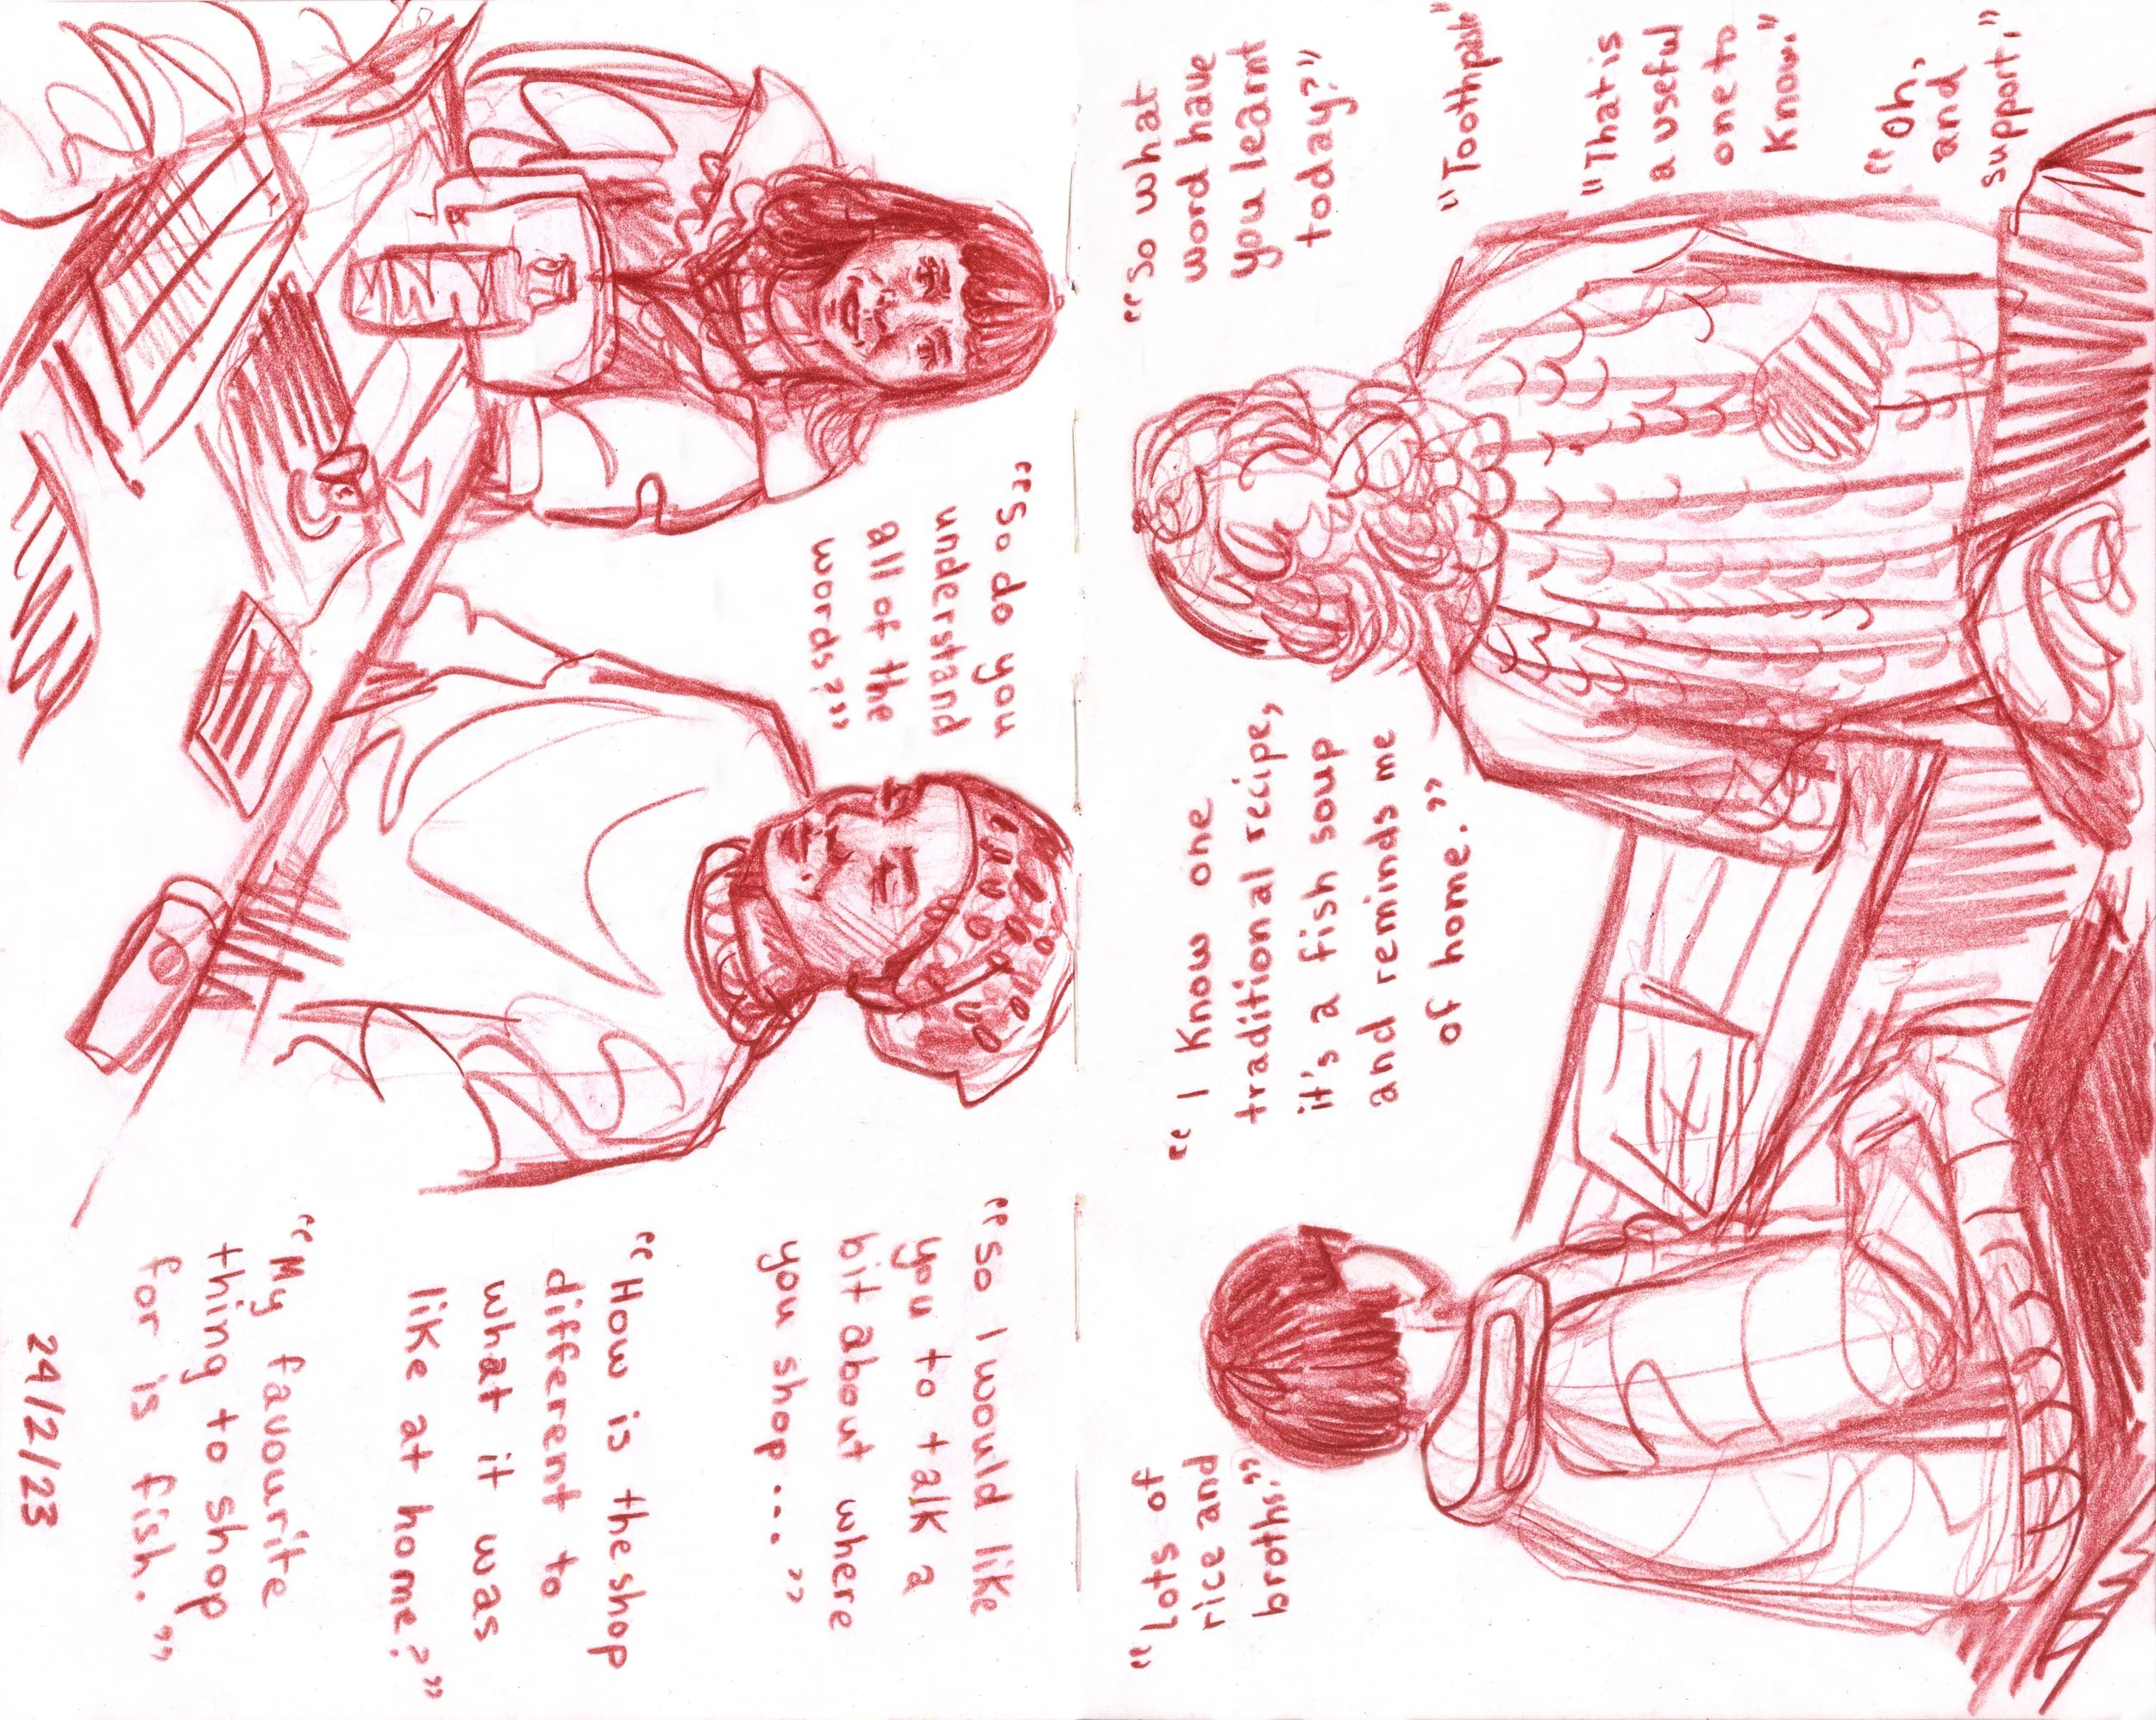 "So do you
understand
all of the
words?"
"So I would like
you to talk a
bit about where
you shop...."
"How is the shop
different to
what it was
like at home?"
"My favourite
thing to shop
for is fish."
24/2/23
"So what
word have
you learnt
today?"
"Toothpaste"
"That is
a useful
one to
know."
"Oh,
and
support,"
"I know one
traditional recipe,
it's a fish soup
and reminds me
of home."
"Lots of
rice and
broths."